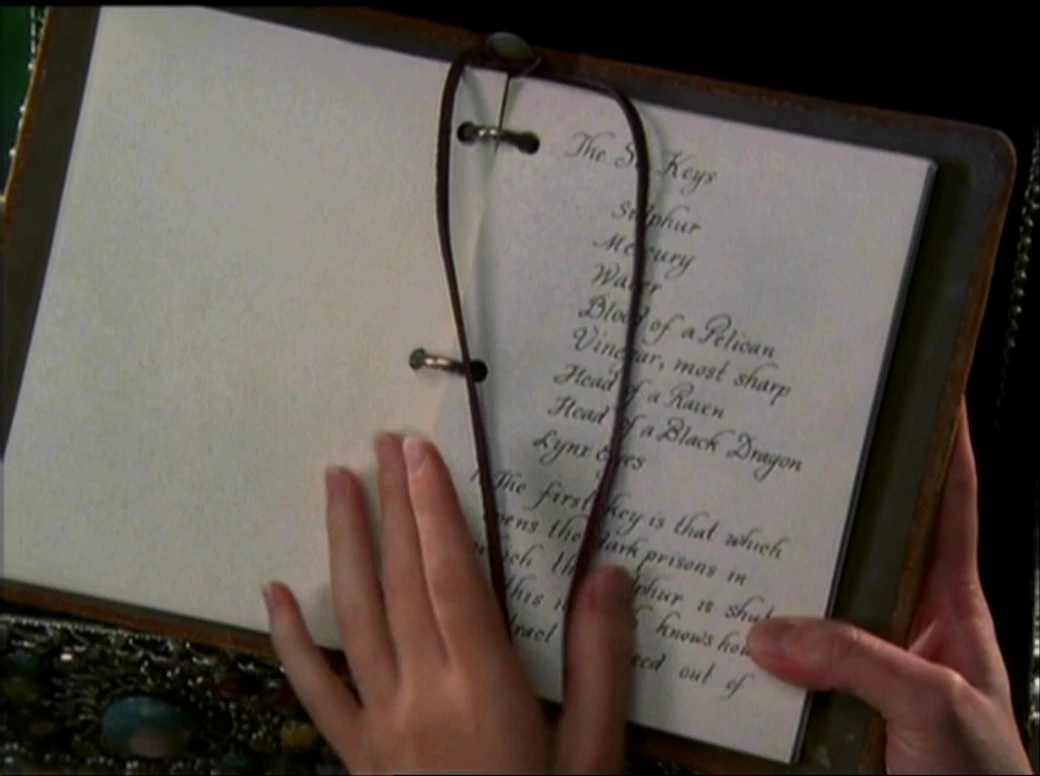 The Six Keys
Sulphur
Mercury
Water
Blood of a Pelican
Vinegar, most sharp
Head of a Raven
Head of a Black Dragon
Lynx Eyes
The first key is that which
opens the dark prisons in
which the Sulphur is shut
this knows how
out of